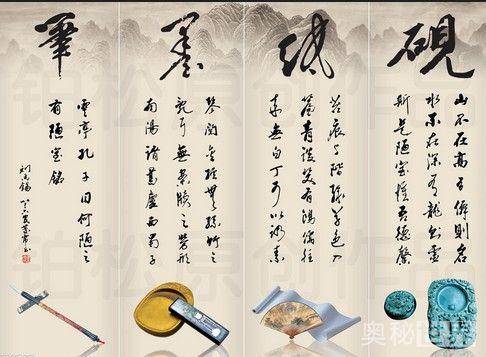 硯
山不在高有僊則名
水不在深有龍則靈
斯是陋室惟吾德馨
紙
苔痕上階綠草色入
簾青談笑有鴻儒往
來無白丁可以調素
墨
琴閱金經無絲竹之
亂耳無案牘之勞形
南陽諸葛廬西蜀子
筆
雲亭孔子曰何陋之
有陋室銘
劉禹錫
铂松原创作品
铂松原创作品
奥秘